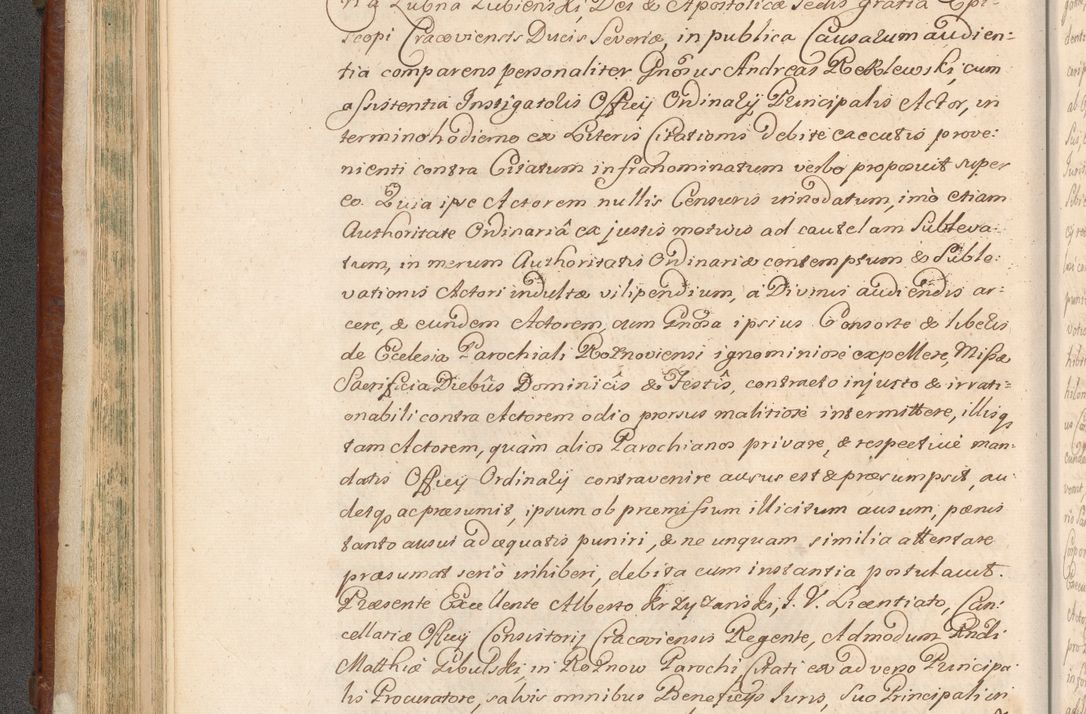 ni a Lubna Lubienski, Dei & Apostolicæ Sedis gratia Epi-
scopi Cracoviensis Ducis Severiæ, in publica Causarum audien-
tia comparens personaliter Gnõsus Andreas Reklewski, cum
assistentia Instigatoris Officij Ordinarij Principalis Actor, in
termino hodierno ex Literis Citationis debite executis prove-
nienti contra Citatum infranominatum verbo proposuit super
eo. Quia ipse Actorem nullis Censuris innodatum, imò etiam
Authoritate Ordinariâ ex justis motivis ad cautelam Subleva-
tum, in merum Authoritatis Ordinariæ contemptum & Suble-
vationis Actori indultæ vilipendium, a Divinis audiendis ar-
cere, & eundem Actorem, cum Gnõsa ipsius Consorte & liberis
de Ecclesia Parochiali Rożnoviensi ignominiosè expellere, Missæ
Sacrificia Diebûs Dominicis & Festîs, contracto injusto & irrati-
onabili contra Actorem odio prorsus malitiosè intermittere, illisq
tam Actorem, quàm alios Parochianos privare, & respectivè man-
datis Officij Ordinarij contravenire ausus est & præsumpsit, au-
detq ac præsumit, ipsum ob præmissum illicitum ausum, pænis
tanto ausui adæquatis puniri, & ne unquam similia attentare
præsumat seriò inhiberi, debita cum instantia postulavit.
Præsente Excellente Alberto Krzyżanski, J. V. Licentiato, Can-
cellariæ Officij Consistorij Cracoviensis Regente, Admodum Rndi
Matthiæ Cibulski, in Rożnow Parochi Citati ex adverso Principa-
lis Procuratore, salvis omnibus Beneficijs Juris, Suo Principali in